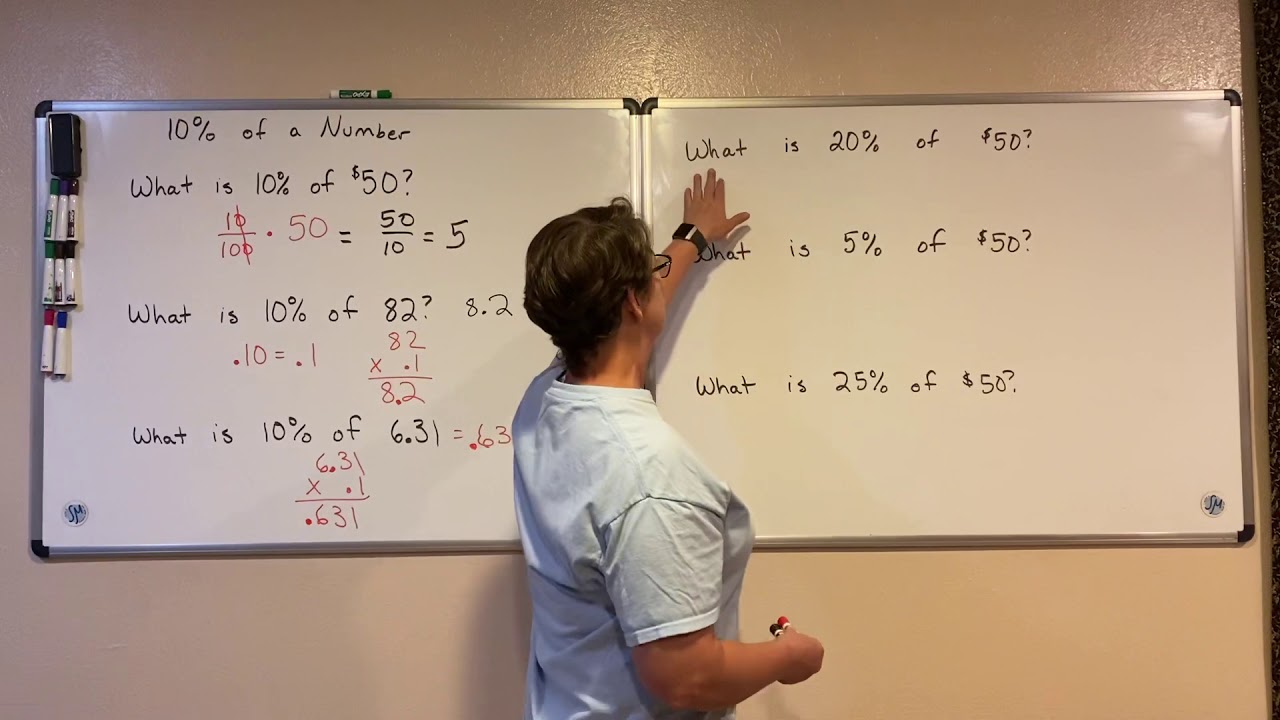 10% of a Number
What is 10% of $50?
10/100 · 50 = 50/10 = 5
What is 10% of 82? 8.2
.10 = .1
82
x .1
8.2
What is 10% of 6.31 = .63
6.31
x .1
.631
SM
What is 20% of $50?
What is 5% of $50?
What is 25% of $50?
SM